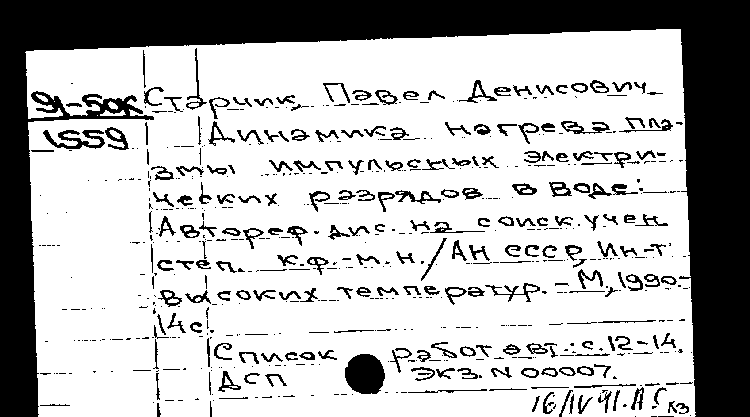 91-50к
1559
Старчик, Павел Денисович.
Динамика нагрева пла-
змы импульсных электри-
ческих разрядов в воде:
Автореф. дис. на соиск. учен.
степ. к.ф.-м.н. / АН СССР, Ин-т
высоких температур. – М., 1990.-
14 с.
Список работ авт.: с. 12-14.
ДСП Экз. N 00007.
16/IV 91.
кз